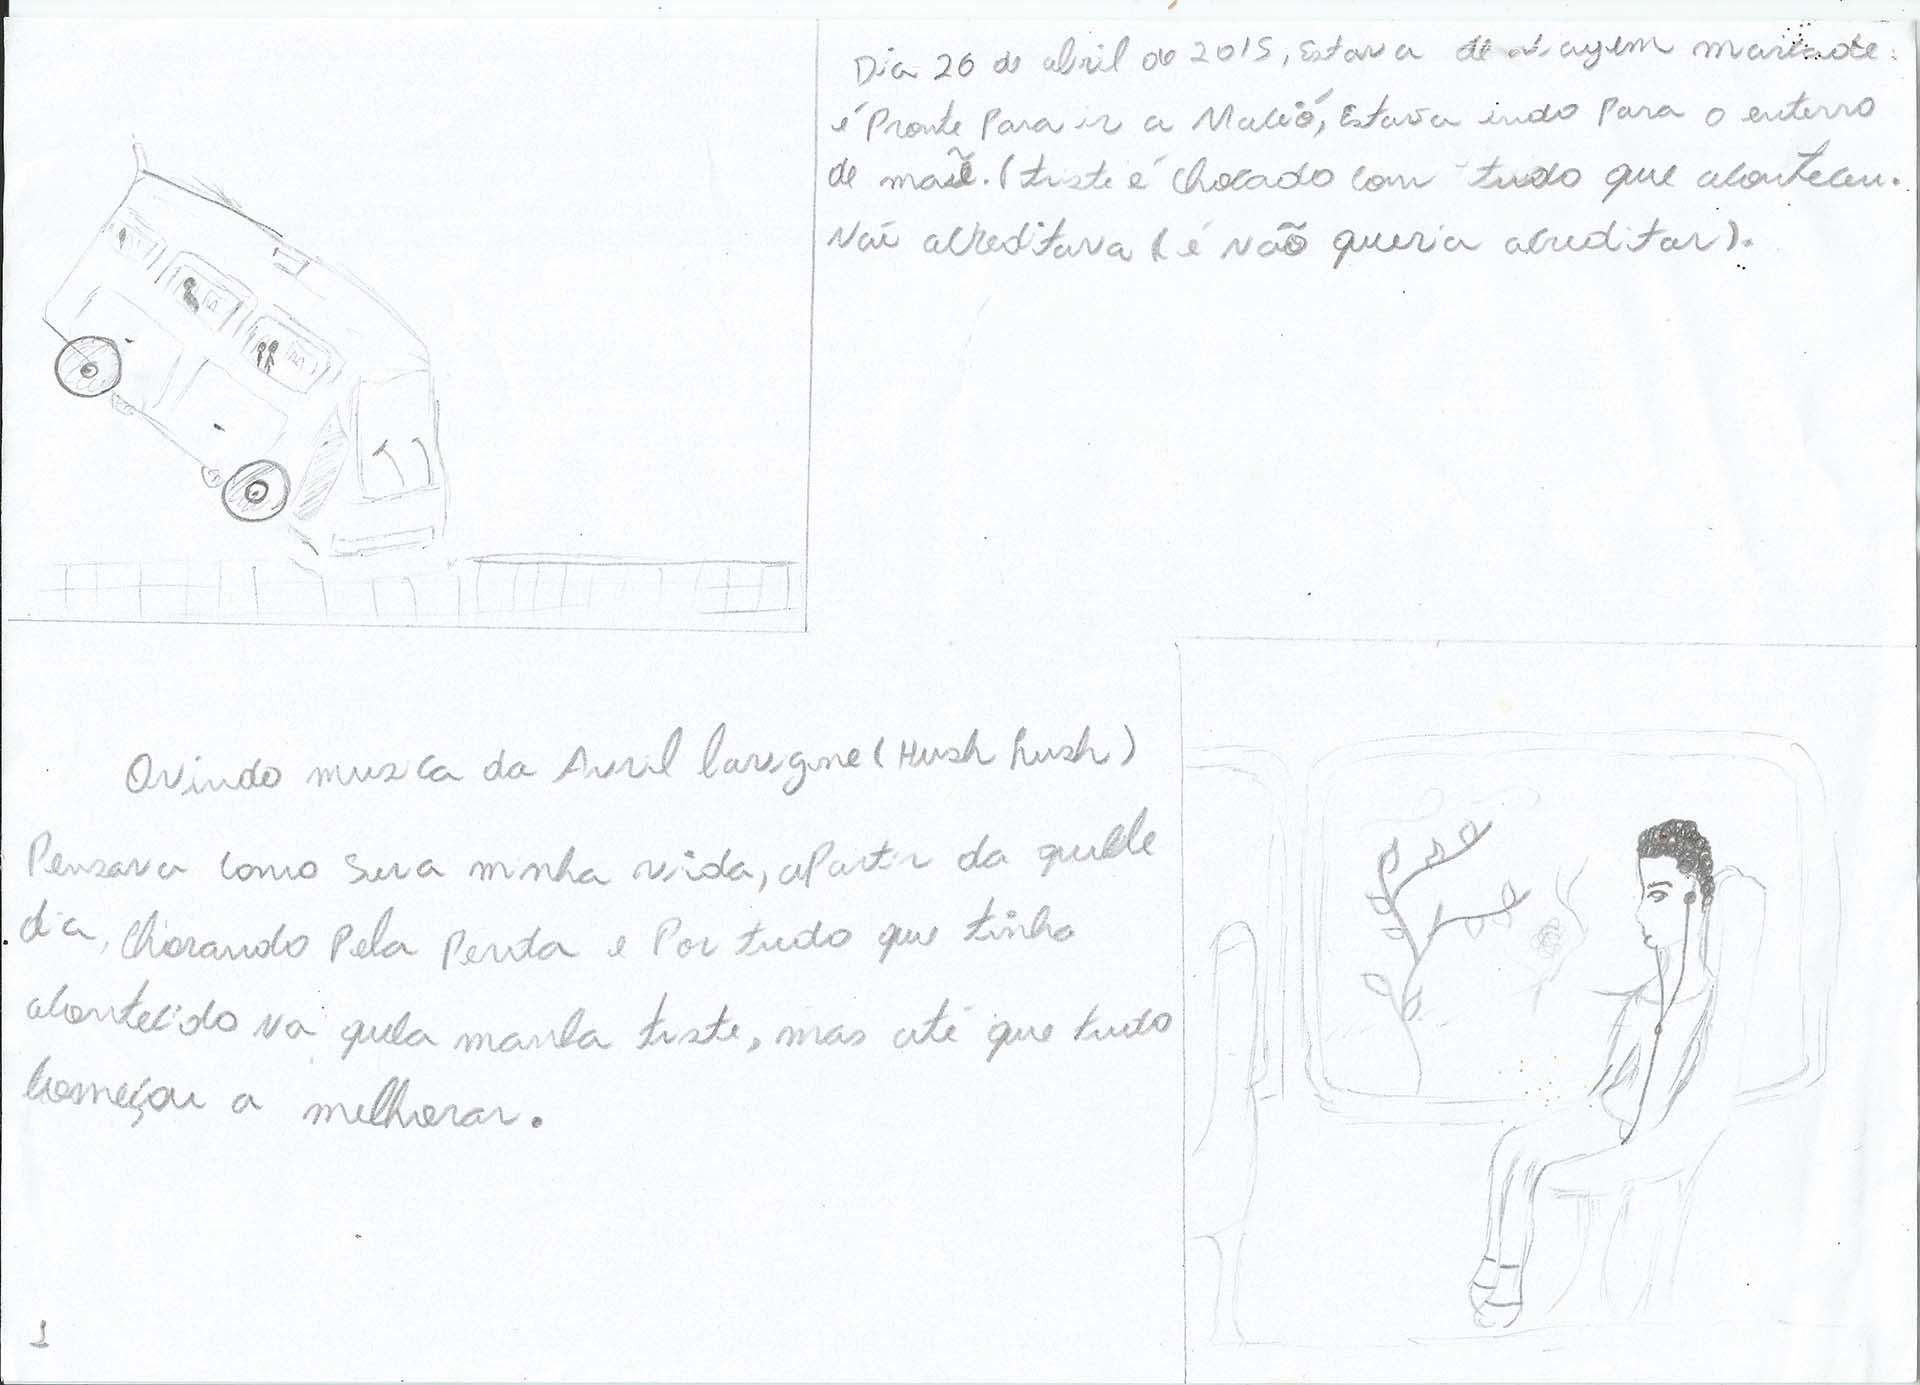 Dia 26 de abril de 2015, Estava de viagem marcade
é Pronte Para ir a Maceió, Estava indo Para o enterro
de maẽ. (triste é chocado com tudo que aconteceu.
Não acreditava (é não queria acreditar).
Ovindo musica da Avril lavigne (Hush hush)
Pensava como sera minha vida, apartir da quele
dia, chorando Pela Perda e Por tudo que tinha
acontecido na quela manha triste, mas até que tudo
começou a melhorar.
1